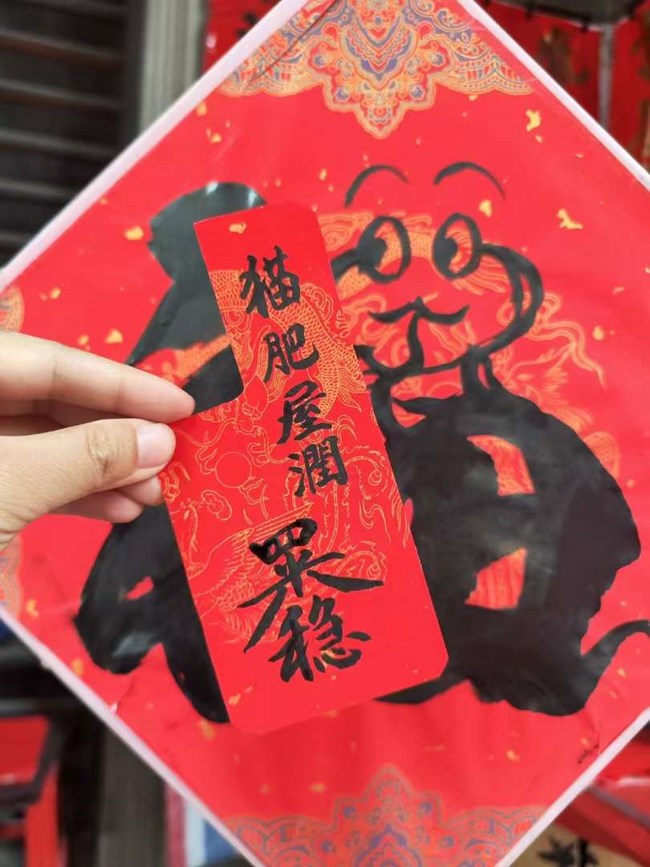 猫肥屋潤
罙稳